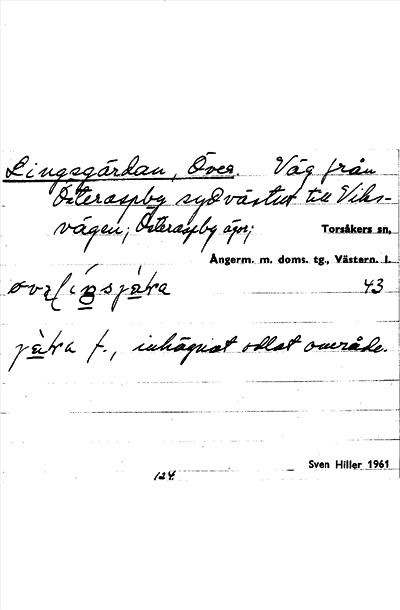 Lingsgärdan, Över. Väg från
Österaspby sydväster till Viks-
vägen; Österaspby ägor;
Torsåkers sn,
Ångerm. m. doms. tg., Västern. l.
43
f., inhägnat odlat område.
Sven Hiller 1961
124.